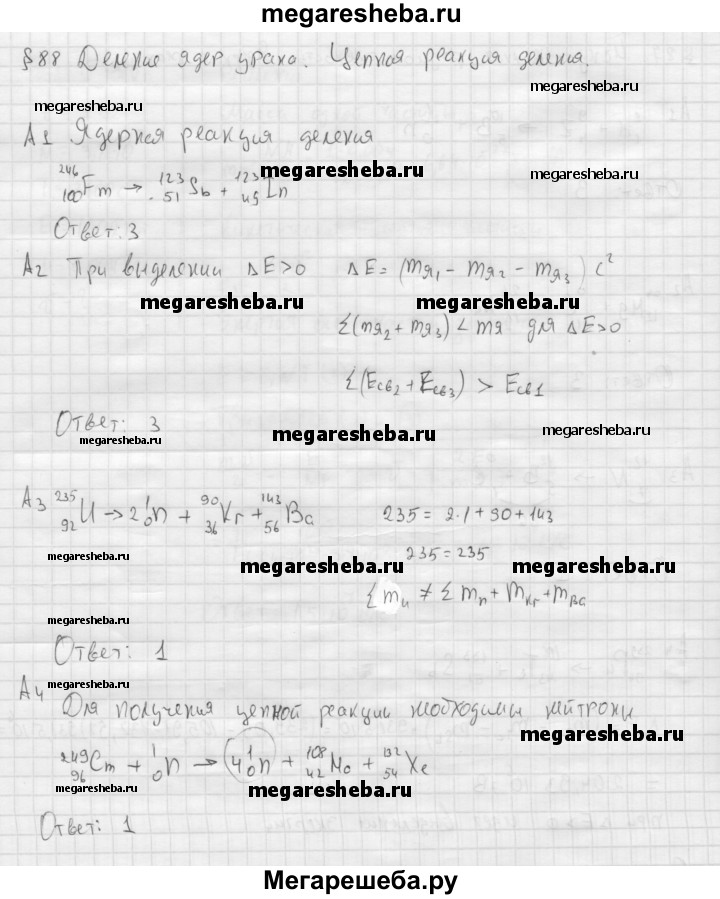 megaresheba.ru
§88 Деление ядер урана. Цепная реакция деления.
megaresheba.ru
megaresheba.ru
A1 Ядерная реакция деления
megaresheba.ru megaresheba.ru
²⁴⁶₁₀₀Fm → ¹²³₅₁Sb + ¹²³₄₉In
Ответ: 3
A2 При выделении ΔE>0 ΔE = (mя₁ - mя₂ - mя₃) c²
megaresheba.ru megaresheba.ru
Σ(mя₂ + mя₃) < mя для ΔE>0
Σ(Eсв₂ + Eсв₃) > Eсв1
Ответ: 3
megaresheba.ru megaresheba.ru megaresheba.ru
A3 ²³⁵₉₂U → 2¹₀n + ⁹⁰₃₆Kr + ¹⁴³₅₆Ba 235 = 2·1 + 90 + 143
235 = 235
megaresheba.ru megaresheba.ru megaresheba.ru
Σ mu ≠ Σ mn + mKr + mBa
megaresheba.ru
Ответ: 1
megaresheba.ru
A4 Для получения цепной реакции необходимы нейтроны
megaresheba.ru
²⁴⁹₉₆Cm + ¹₀n → 4¹₀n + ¹⁰⁸₄₂Mo + ¹³²₅₄Xe
megaresheba.ru megaresheba.ru
Ответ: 1
Мегарешеба.ру